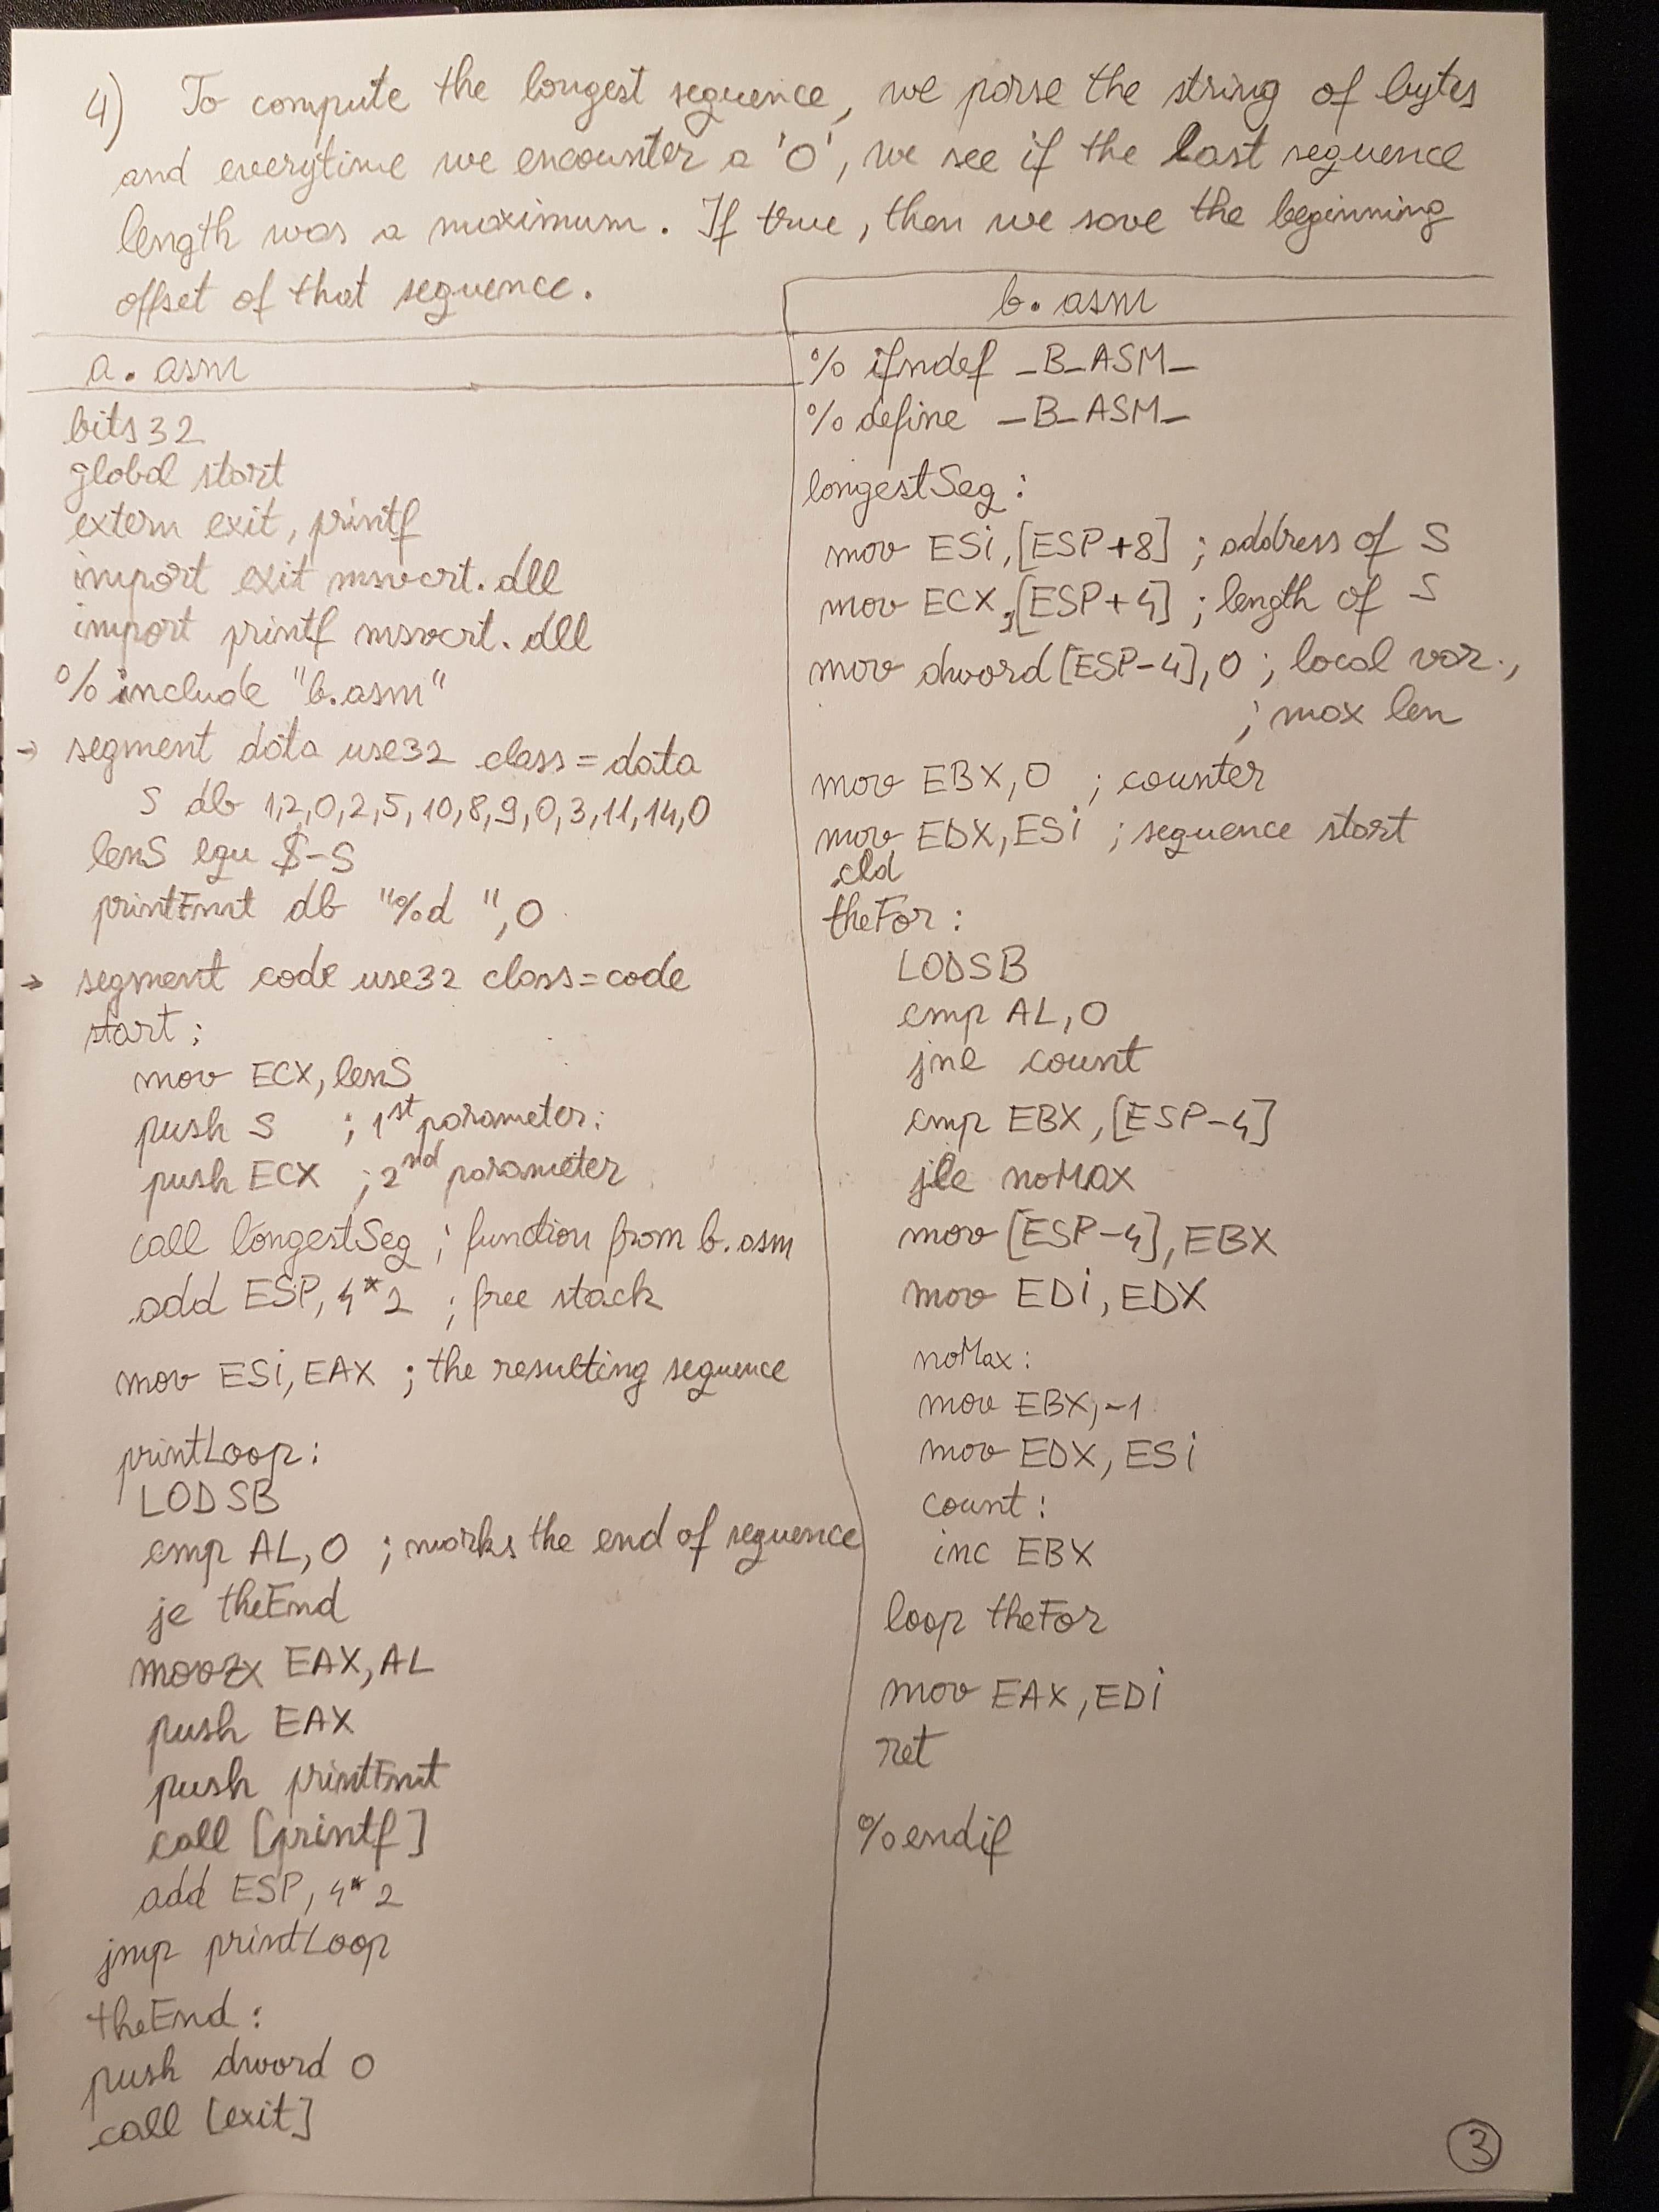 4) To compute the longest sequence, we parse the string of bytes
and everytime we encounter a '0', we see if the last sequence
length was a maximum. If true, then we save the beginning
offset of that sequence.
a.asm
bits 32
global start
extern exit, printf
import exit msvcrt.dll
import printf msvcrt.dll
% include "b.asm"
→ segment data use32 class=data
S db 1,2,0,2,5,10,8,9,0,3,11,14,0
lenS equ $-S
printFmt db "%d ",0
→ segment code use32 class=code
start:
mov ECX, lenS
push S ; 1st parameter;
push ECX ; 2nd parameter
call longestSeq ; function from b.asm
add ESP, 4*2 ; free stack
mov ESi, EAX ; the resulting sequence
printLoop:
LODSB
cmp AL, 0 ; marks the end of sequence
je theEnd
movzx EAX, AL
push EAX
push printFmt
call [printf]
add ESP, 4*2
jmp printLoop
theEnd:
push dword 0
call [exit]
b.asm
% ifndef _B_ASM_
% define _B_ASM_
longestSeq:
mov ESi, [ESP+8] ; address of S
mov ECX, [ESP+4] ; length of S
mov dword [ESP-4], 0 ; local var.,
; max len
mov EBX, 0 ; counter
mov EDX, ESi ; sequence start
cld
theFor:
LODSB
cmp AL, 0
jne count
cmp EBX, [ESP-4]
jle noMax
mov [ESP-4], EBX
mov EDi, EDX
noMax:
mov EBX, -1
mov EDX, ESi
count:
inc EBX
loop theFor
mov EAX, EDi
ret
% endif
3